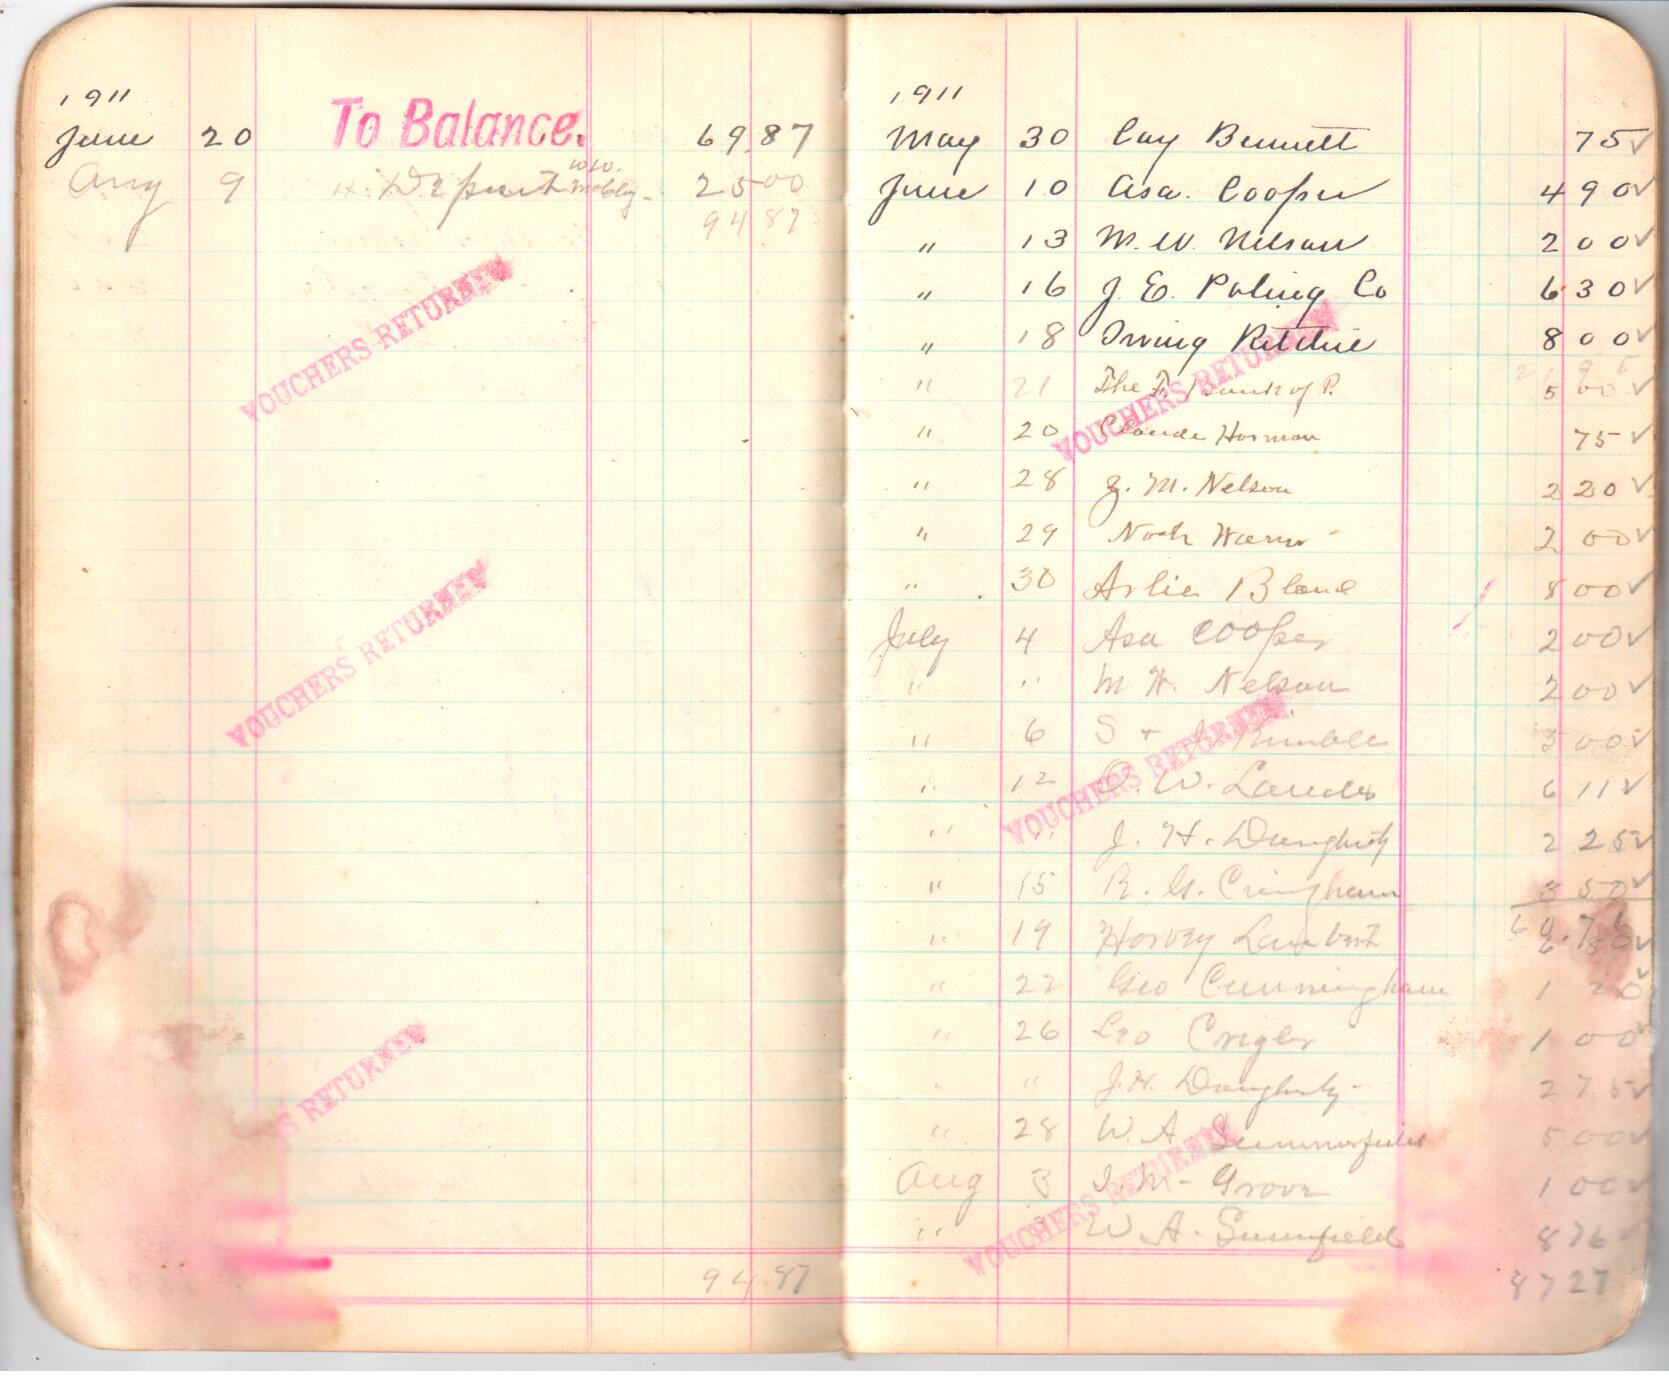 1911
June 20 To Balance. 69.87
Aug 9 Deposit W.W. 25 00
94 87
VOUCHERS RETURNED
VOUCHERS RETURNED
S RETURNED
94 87
1911
May 30 Cay Bennett 75 ✓
June 10 Asa. Cooper 4 90 ✓
" 13 M. W. Nelson 2 00 ✓
" 16 J. E. Poling Co 6 30 ✓
" 18 Irving Ritchie 8 00 ✓
21 95
" 21 The F. Bank of P. 5 00 ✓
VOUCHERS RETURNED
" 20 Claude Harman 75 ✓
" 28 J. M. Nelson 2 20 ✓
" 29 Noah 2 00 ✓
" 30 Arlie Bland 8 00 ✓
July 4 Asa Cooper 2 00 ✓
" " M W. Nelson 2 00 ✓
" 6 S + Kimble 3 00 ✓
" 12 O. W. Landes 6 11 ✓
VOUCHERS RETURNED
" " J. H. Daugherty 2 25 ✓
" 15 R. G. 3 50 ✓
60.76
" 19 Harvey Lambert 6 80 ✓
" 22 Geo Cunningham 1 20 ✓
" 26 Leo Crigler 1 00 ✓
" " J. H. Daugherty 2 75 ✓
" 28 W. A. Summerfield 5 00 ✓
Aug 3 I. M. Grove 1 00 ✓
" 3 W. A. 8 76 ✓
VOUCHERS RETURNED
87 27